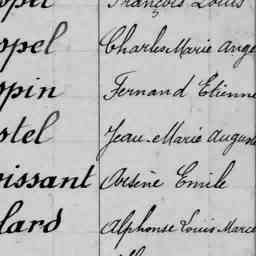 François Louis
ppel Charles Marie Ange
ppin Fernand Etienne
stel Jean-Marie Auguste
oissant Arsène Emile
lard Alphonse Louis Marce